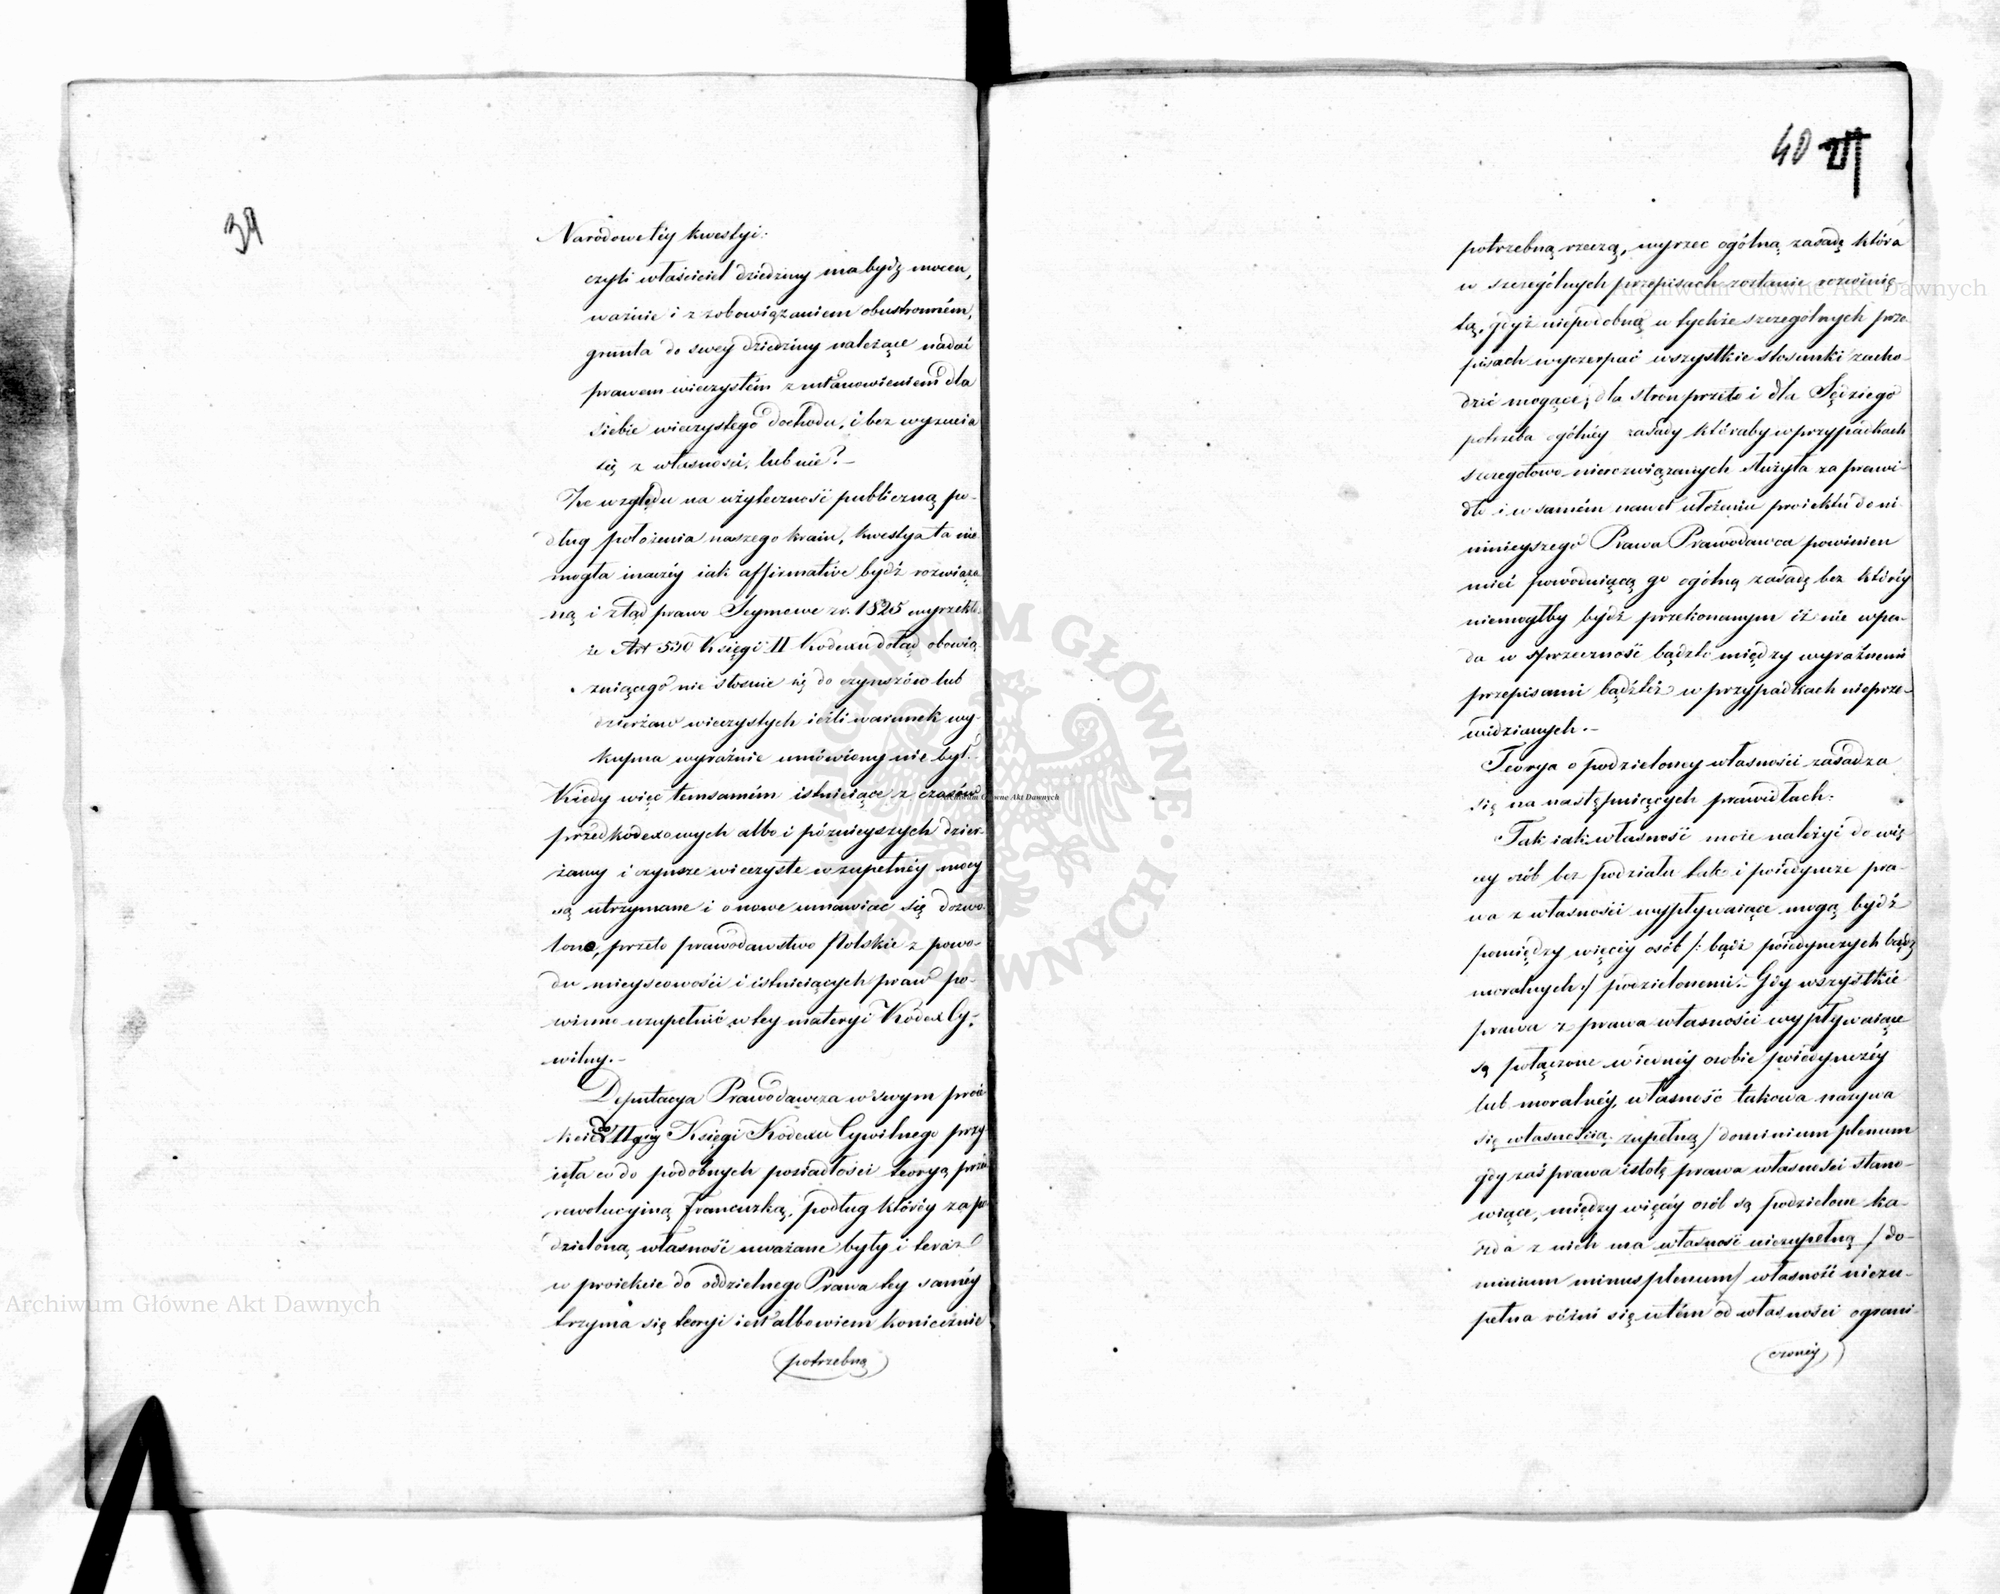 39
Narodowey kwestyi:
czyli właściciel dziedziny ma bydź mocen,
ważnie i z zobowiązaniem obustronném,
grunta do swey dziedziny należące nadać
prawem wieczystém z ustanowieniem dla
siebie wieczystego dochodu, i bez wyzucia
się z własności, lub nie? –
Ze względu na użyteczność publiczną po-
dług położenia naszego kraiu, kwestya ta nie
mogła inaczéy iak affirmative bydź rozwiąza
ną i ztąd prawo Seymowe z r. 1825 wyrzekło
że Art 530 Księgi II Kodexu dotąd obowią
zuiącego nie stosuie się do czynszów lub
dzierżaw wieczystych ieżli warunek wy-
kupna wyraźnie umówiony nie był. –
Kiedy więc temsamém istnieiące z czasów
przedkodexowych albo i późnieyszych dzier-
żawy i czynsze wieczyste w zupełnéy mocy
są utrzymane i o nowe umawiać się dozwo-
lono, przeto prawodawstwo Polskie z powo-
du mieyscowości i istnieiących praw po-
winno uzupełnić w tey materyi Kodex Cy-
wilny. –
Deputacya Prawodawcza w swym proie
kcie IIgiéy Księgi Kodexu Cywilnego przy-
ięła co do podobnych posiadłości teoryą przed
rewolucyiną francuzką, podług któréy za po
dzieloną własność uważane były i teraz
w proiekcie do oddzielnego Prawa tey saméy
trzyma się teoryi iest albowiem koniecznie
(potrzebną)
40
potrzebną rzeczą, wyrzec ogólną zasadę która
w szczególnych przepisach zostanie rozwinię-
tą, gdyż niepodobną w tychże szczególnych prze
pisach wyczerpać wszystkie stosunki zacho-
dzić mogące; dla stron przeto i dla Sędziego
potrzeba ogólnéy zasady któraby w przypadkach
szczegółowo nierozwiązanych służyła za prawi-
dło i w samém nawet ułożeniu proiektu do ni
nieyszego Prawa Prawodawca powinien
mieć powoduiącą go ogólną zasadę bez któréy
niemógłby bydź przekonanym iż nie wpa-
da w sprzeczność bądzto między wyraźnemi
przepisami bądźteż w przypadkach nieprze-
widzianych. –
Teorya o podzieloney własności zasadza
się na następuiących prawidłach:
Tak iak własność może należyć do wię
cy osób bez podziału tak i poiedyncze pra-
wa z własności wypływaiące mogą bydź
pomiędzy więcéy osób /: bądź poiedynczych bądź
moralnych :/ podzielonemi. – Gdy wszystkie
prawa z prawa własności wypływaiące
są połączone w iednéy osobie poiedynczéy
lub moralnéy, własność takowa nazywa
się własnością zupełną / dominium plenum
gdy zaś prawa istotę prawa własności stano-
wiące, między więcéy osób są podzielone ka-
żda z nich ma własność niezupełną / do-
minium minus plenum / własność niezu-
pełna różni się w tém od własności ograni-
(czonéy)
Archiwum Główne Akt Dawnych
Archiwum Główne Akt Dawnych
Archiwum Główne Akt Dawnych
ARCHIWUM GŁÓWNE AKT DAWNYCH